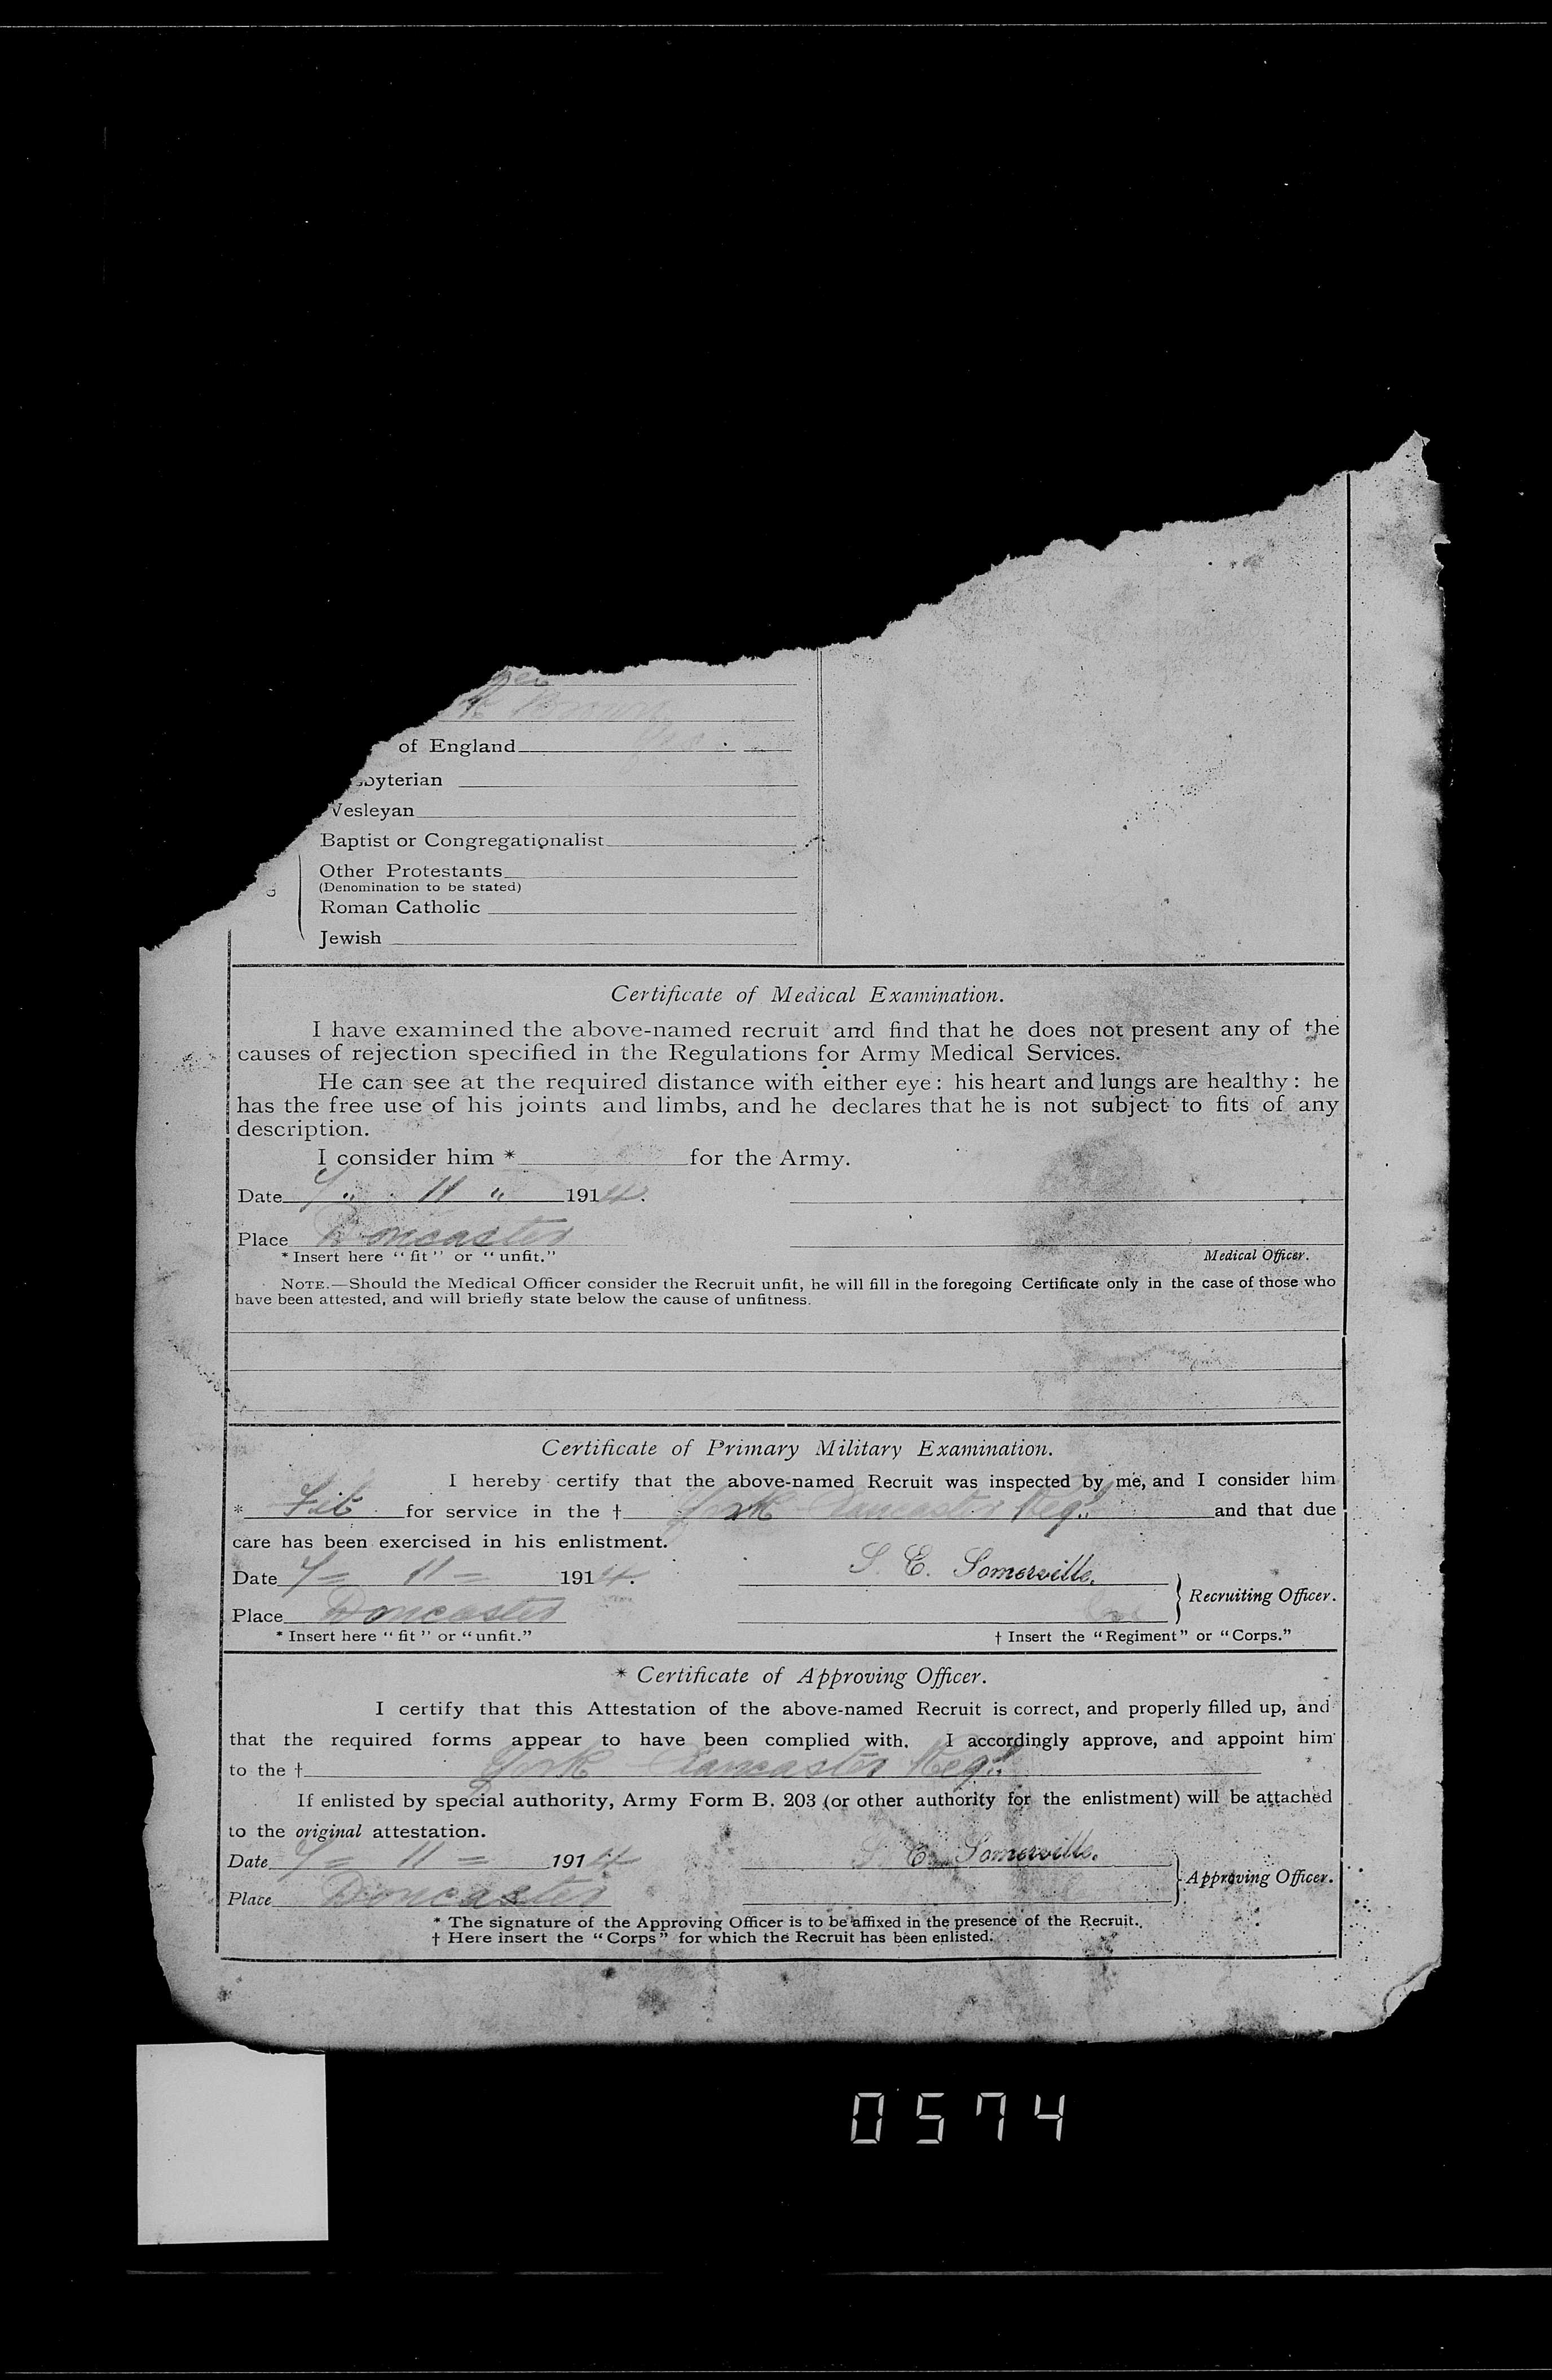 Brown
of England Yes
byterian
Wesleyan
Baptist or Congregationalist
Other Protestants
(Denomination to be stated)
Roman Catholic
Jewish
Certificate of Medical Examination.
I have examined the above-named recruit and find that he does not present any of the
causes of rejection specified in the Regulations for Army Medical Services.
He can see at the required distance with either eye: his heart and lungs are healthy: he
has the free use of his joints and limbs, and he declares that he is not subject to fits of any
description.
I consider him * for the Army.
Date 7 " 11 " 1914.
Place Doncaster
* Insert here "fit" or "unfit."
Medical Officer.
NOTE.—Should the Medical Officer consider the Recruit unfit, he will fill in the foregoing Certificate only in the case of those who
have been attested, and will briefly state below the cause of unfitness.
Certificate of Primary Military Examination.
I hereby certify that the above-named Recruit was inspected by me, and I consider him
* Fit for service in the † York Lancaster Regt. and that due
care has been exercised in his enlistment.
Date 7 = 11 = 1914.
S. E. Somerville.
Recruiting Officer.
Place Doncaster
* Insert here "fit" or "unfit."
† Insert the "Regiment" or "Corps."
* Certificate of Approving Officer.
I certify that this Attestation of the above-named Recruit is correct, and properly filled up, and
that the required forms appear to have been complied with. I accordingly approve, and appoint him
to the † York Lancaster Regt.
If enlisted by special authority, Army Form B. 203 (or other authority for the enlistment) will be attached
to the original attestation.
Date 7 = 11 = 1914
S. E. Somerville.
Approving Officer.
Place Doncaster
* The signature of the Approving Officer is to be affixed in the presence of the Recruit.
† Here insert the "Corps" for which the Recruit has been enlisted.
0574